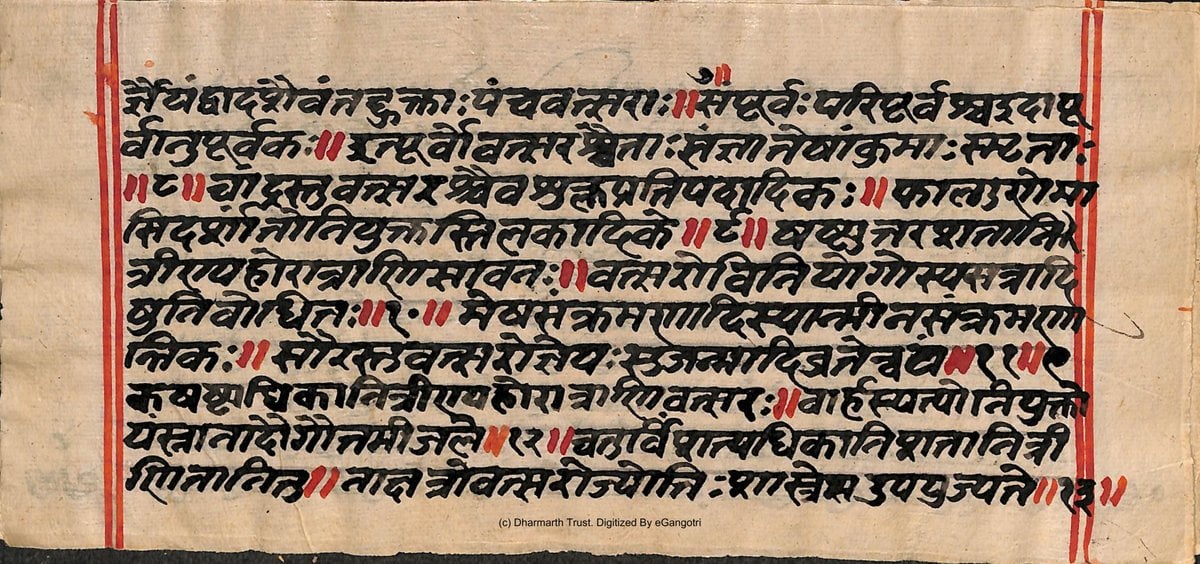 र्ज्ञेयं द्वादशैवं तद्युक्ताः पंचवत्सराः॥ संपूर्वः परिपूर्वश्च इदापू
र्वानुपूर्वकः॥ इत्पूर्वो वत्सरश्चैताः संज्ञा तेषां कुमाः स्मृताः
॥८॥ चांद्रस्तु वत्सरश्चैव शुक्लप्रतिपदादिकः॥ फाल्गुणोमा
सि दर्शांतो नियुक्तस्तिलकादिके॥९॥ षष्ट्युत्तरशतानि
त्रीण्यहोरात्राणि सावनः॥ वत्सरो विनियोगोस्य सत्रादि
षु निवोधितः॥१०॥ मेषसंक्रमणादि स्यान्मीनसंक्रमणा
न्तिकः॥ सौरस्तु वत्सरो ज्ञेयः सुजन्मादिव्रते त्वयं॥११॥ ए
कषष्ट्याधिकानि त्रीण्यहोरात्राणि वत्सरः॥ वार्हस्पत्यो नियुक्तो
यं स्नानादौ गौतमीजले॥१२॥ चतुर्विंशत्यधिकानि शतानि त्री
णि तानि तु॥ नाक्षत्रो वत्सरो ज्योतिः शास्त्रेषु उपयुज्यते॥१३॥
(c) Dharmarth Trust. Digitized By eGangotri